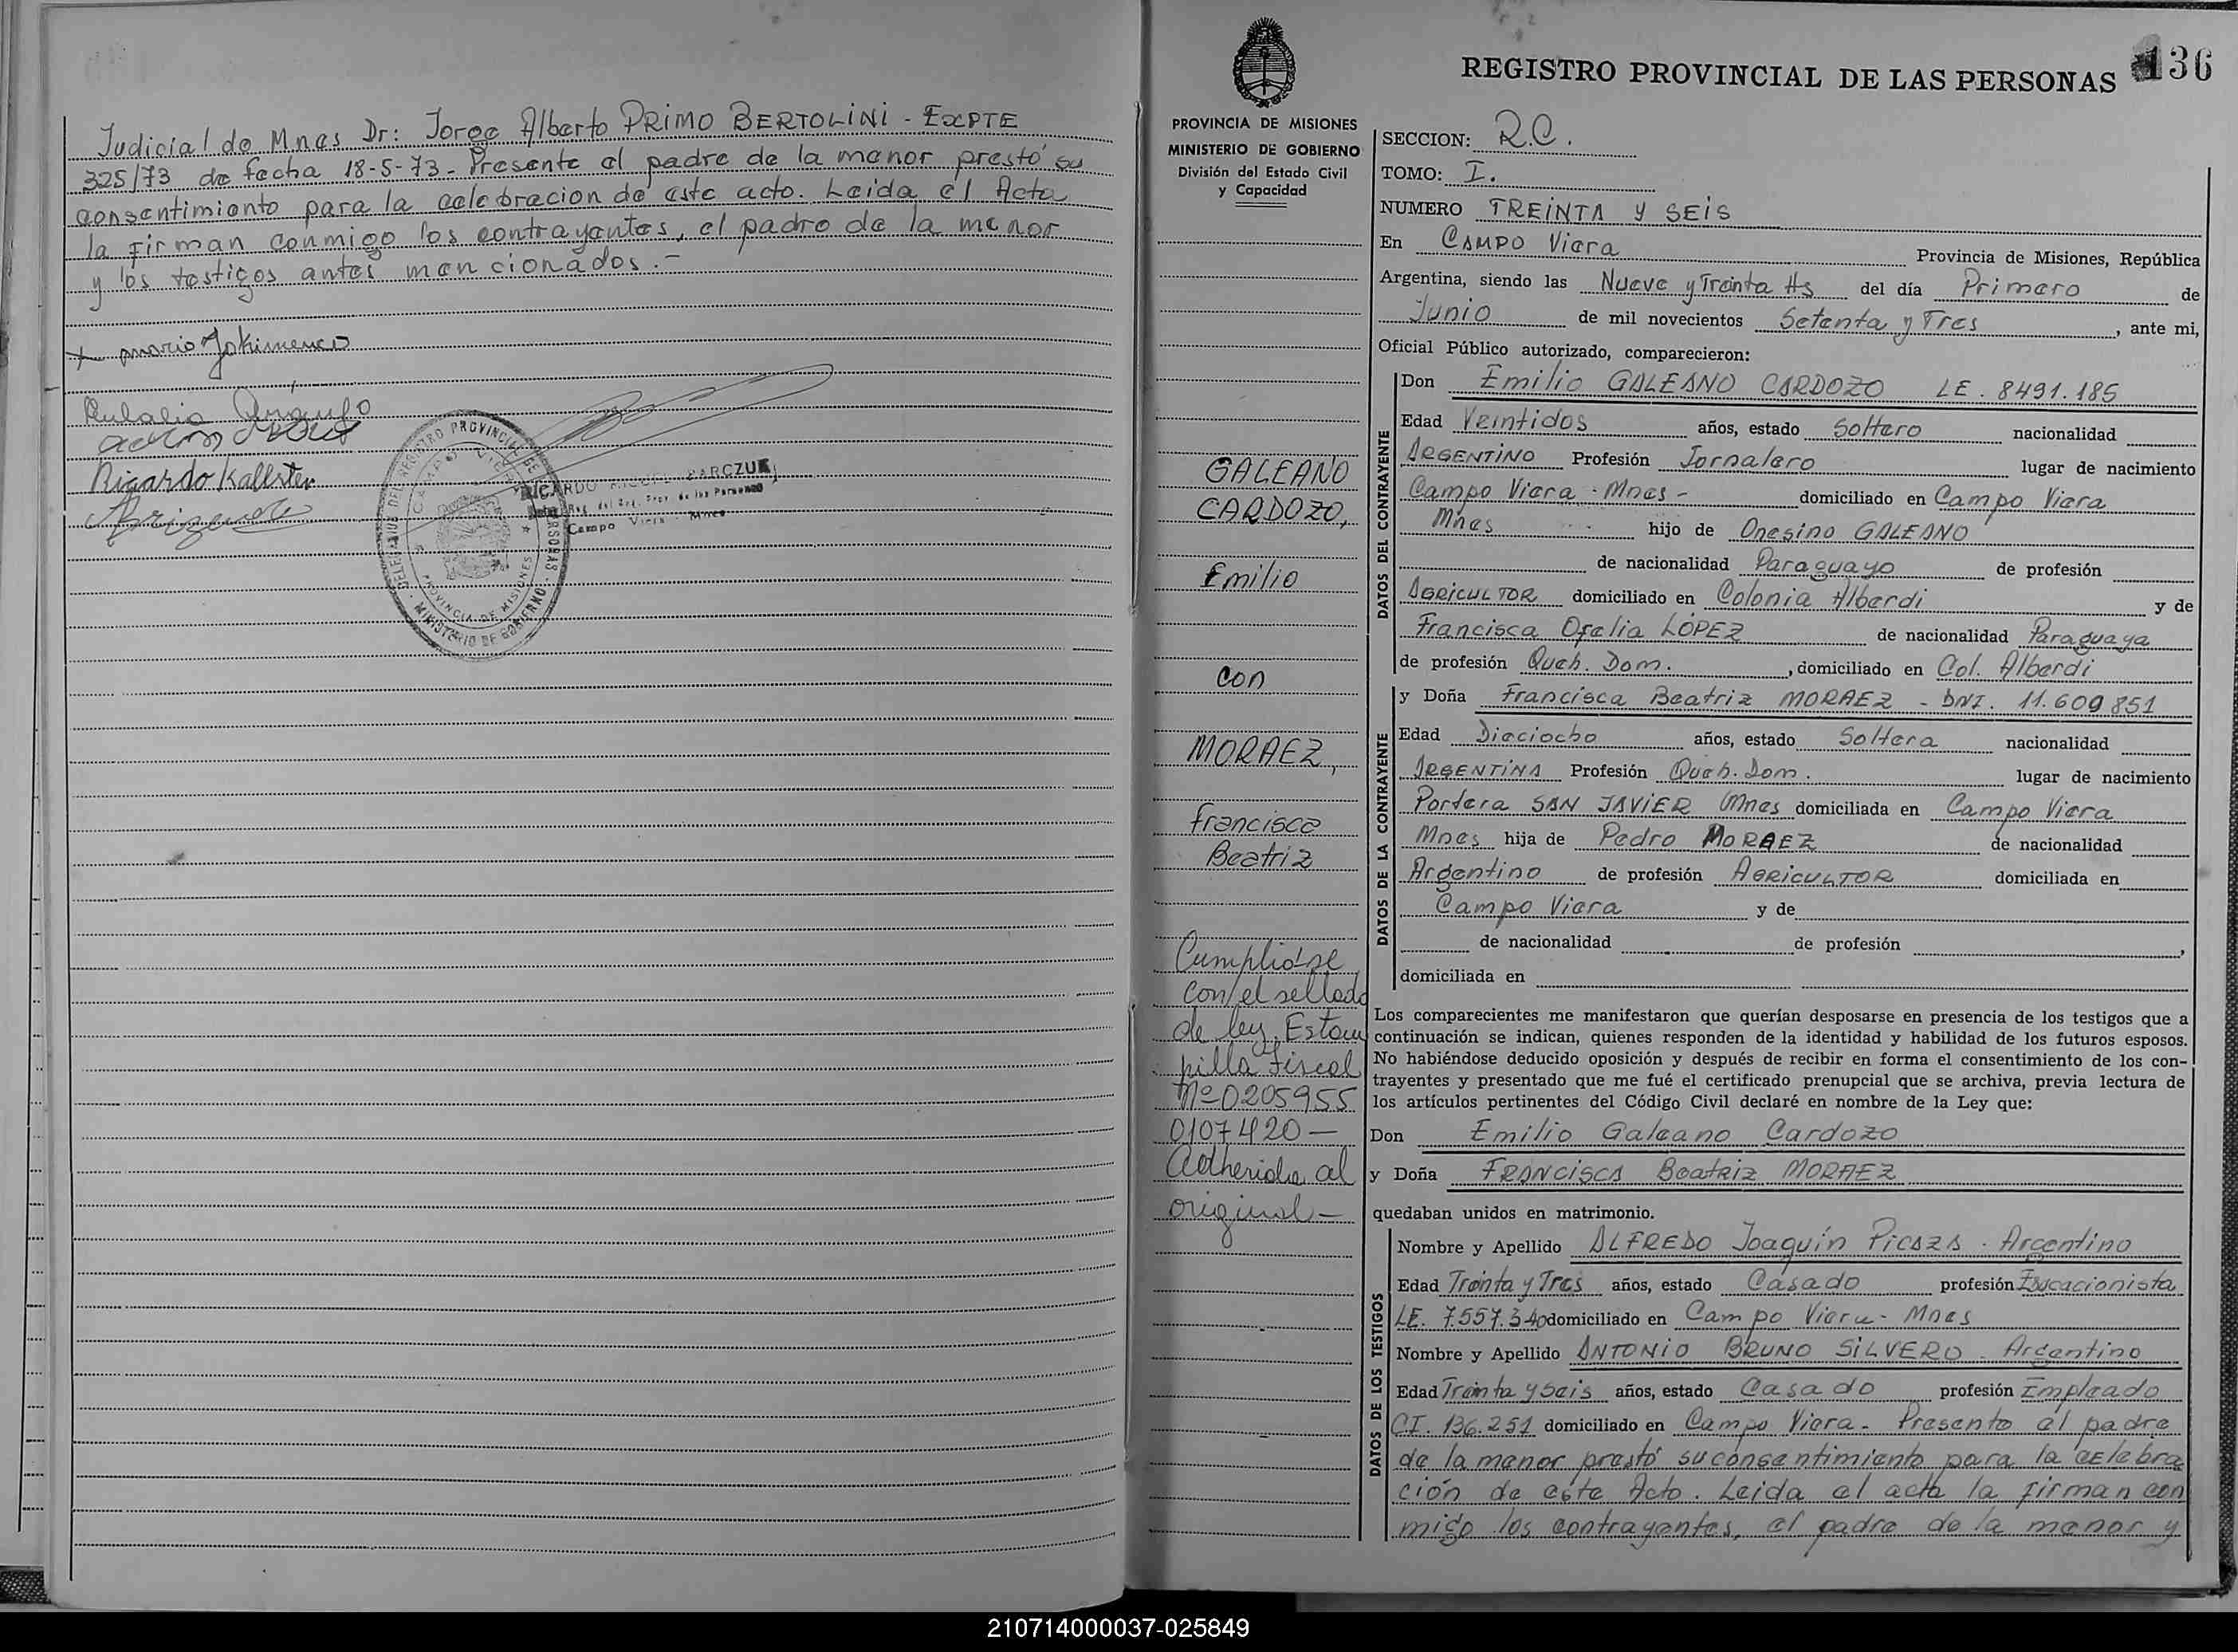 Judicial de Mnes Dr: Jorge Alberto PRIMO BERTOLINI - EXPTE
325/73 de fecha 18-5-73 - Presente el padre de la menor prestó su
consentimiento para la celebracion de este acto. Leida el Acta
la firman conmigo los contrayentes, el padre de la menor
y los testigos antes mencionados.-
Ricardo Kallsten
DELEGACION DEL REGISTRO PROVINCIAL DE PERSONAS
CAMPO VIERA
PROVINCIA DE MISIONES
MINISTERIO DE GOBIERNO
RICARDO MIGUEL BARCZUK
Campo Viera - Mnes
136
REGISTRO PROVINCIAL DE LAS PERSONAS
PROVINCIA DE MISIONES
MINISTERIO DE GOBIERNO
División del Estado Civil
y Capacidad
GALEANO
CARDOZO,
Emilio
con
MORAEZ,
Francisca
Beatriz
Cumpliose
con el sellado
de ley, Estam
pilla Fiscal
Nº 0205955
0107420 -
Adherida al
original -
SECCION: R.C.
TOMO: I.
NUMERO TREINTA Y SEIS
En CAMPO Viera Provincia de Misiones, República
Argentina, siendo las Nueve y Treinta Hs del día Primero de
Junio de mil novecientos Setenta y Tres, ante mi,
Oficial Público autorizado, comparecieron:
DATOS DEL CONTRAYENTE
Don Emilio GALEANO CARDOZO LE. 8491.185
Edad Veintidos años, estado Soltero nacionalidad
ARGENTINO Profesión Jornalero lugar de nacimiento
Campo Viera - Mnes - domiciliado en Campo Viera
Mnes hijo de Onesino GALEANO
de nacionalidad Paraguayo de profesión
AGRICULTOR domiciliado en Colonia Alberdi y de
Francisca Ofelia LÓPEZ de nacionalidad Paraguaya
de profesión Queh. Dom. , domiciliado en Col. Alberdi
DATOS DE LA CONTRAYENTE
y Doña Francisca Beatriz MORAEZ - DNI. 11.609.851
Edad Dieciocho años, estado Soltera nacionalidad
ARGENTINA Profesión Queh. Dom. lugar de nacimiento
Portera SAN JAVIER Mnes domiciliada en Campo Viera
Mnes hija de Pedro MORAEZ de nacionalidad
Argentino de profesión AGRICULTOR domiciliada en
Campo Viera y de
de nacionalidad de profesión ,
domiciliada en
Los comparecientes me manifestaron que querían desposarse en presencia de los testigos que a
continuación se indican, quienes responden de la identidad y habilidad de los futuros esposos.
No habiéndose deducido oposición y después de recibir en forma el consentimiento de los con-
trayentes y presentado que me fué el certificado prenupcial que se archiva, previa lectura de
los artículos pertinentes del Código Civil declaré en nombre de la Ley que:
Don Emilio Galeano Cardozo
y Doña FRANCISCA Beatriz MORAEZ
quedaban unidos en matrimonio.
DATOS DE LOS TESTIGOS
Nombre y Apellido ALFREDO Joaquín PICAZA - Argentino
Edad Treinta y Tres años, estado Casado profesión Educacionista
LE. 7.557.340 domiciliado en Campo Viera - Mnes
Nombre y Apellido ANTONIO BRUNO SILVERO - Argentino
Edad Treinta y Seis años, estado Casado profesión Empleado
CI. 136.251 domiciliado en Campo Viera - Presente el padre
de la menor prestó su consentimiento para la celebra
ción de este Acto. Leida el acta la firman con
migo los contrayentes, el padre de la menor y
210714000037-025849